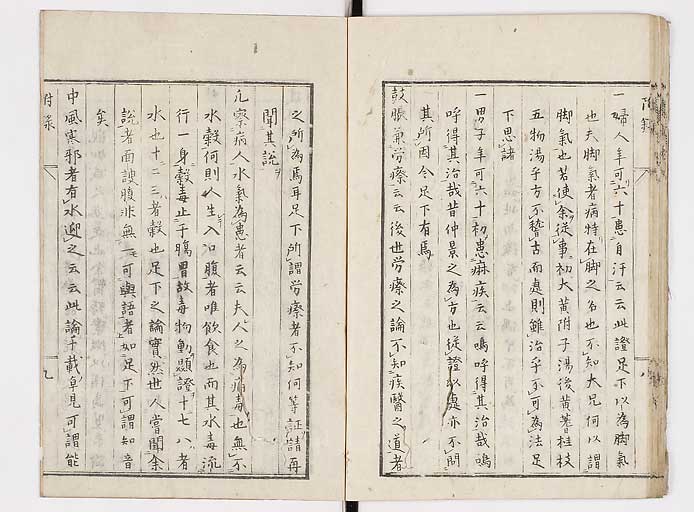 附錄
一婦人年可六十患自汗云云此證足下以為脚氣
也夫脚氣者病特在脚之名也不知大兄何以謂
脚氣也若使余從事初大黄附子湯後黄耆桂枝
五物湯乎方不稽古而處則雖治乎不可為法足
下思諸
一男子年可六十初患痳疾云云嗚呼得其治哉嗚
呼得其治哉昔仲景之為方也從證以處亦不問
其所因今足下有焉
鼓脹兼労瘵云云後世労瘵之論不知疾醫之道者
八
之所為焉耳足下所謂労瘵者不知何等証請再
聞其説
凡察病人水氣為患者云云夫人之為病毒也無不
水穀何則人生入口腹者唯飲食也而其水毒流
行一身穀毒止于腸胃故毒物動顯證十七八者
水也十二三者穀也足下之論實然世人嘗聞余
説者面諛腹非無一可與語者如足下可謂知音
矣
中風寒邪者有水迎之云云此論千載卓見可謂能
附錄
九